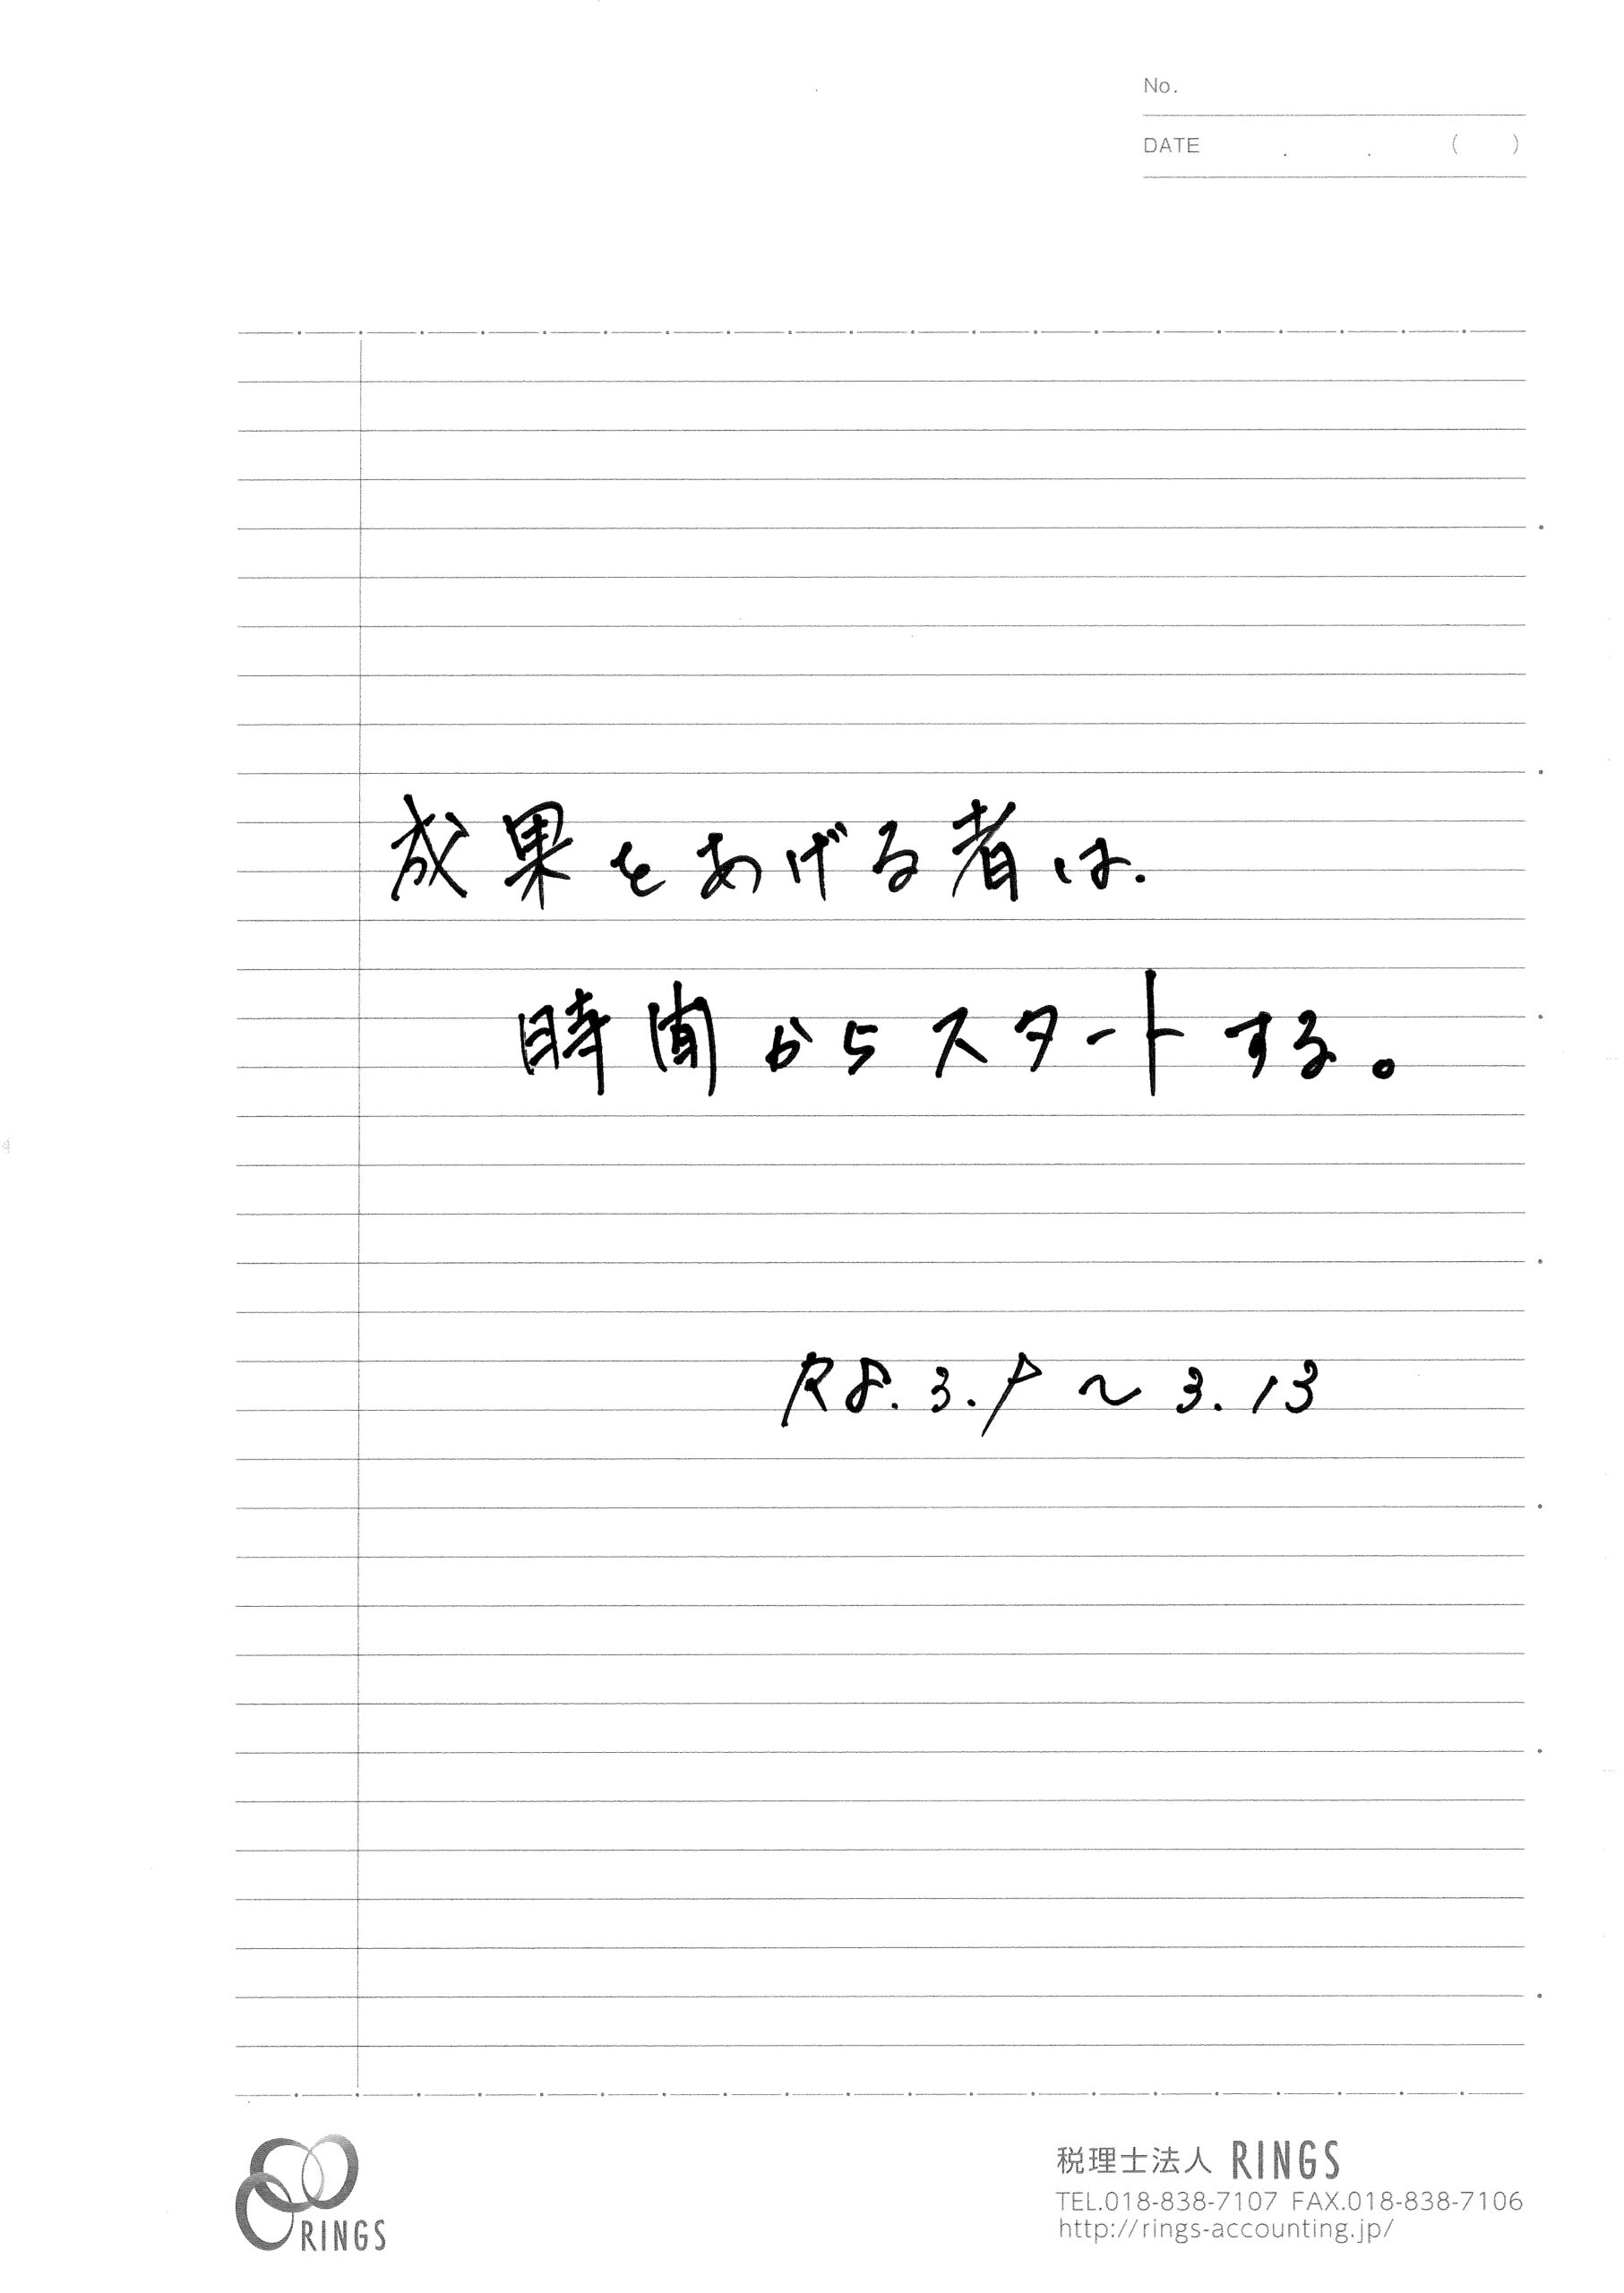 No.
DATE . . ( )
成果をあげる者は.
時間からスタートする。
R8.3.9 〜 3.13
RINGS
税理士法人 RINGS
TEL.018-838-7107 FAX.018-838-7106
http://rings-accounting.jp/